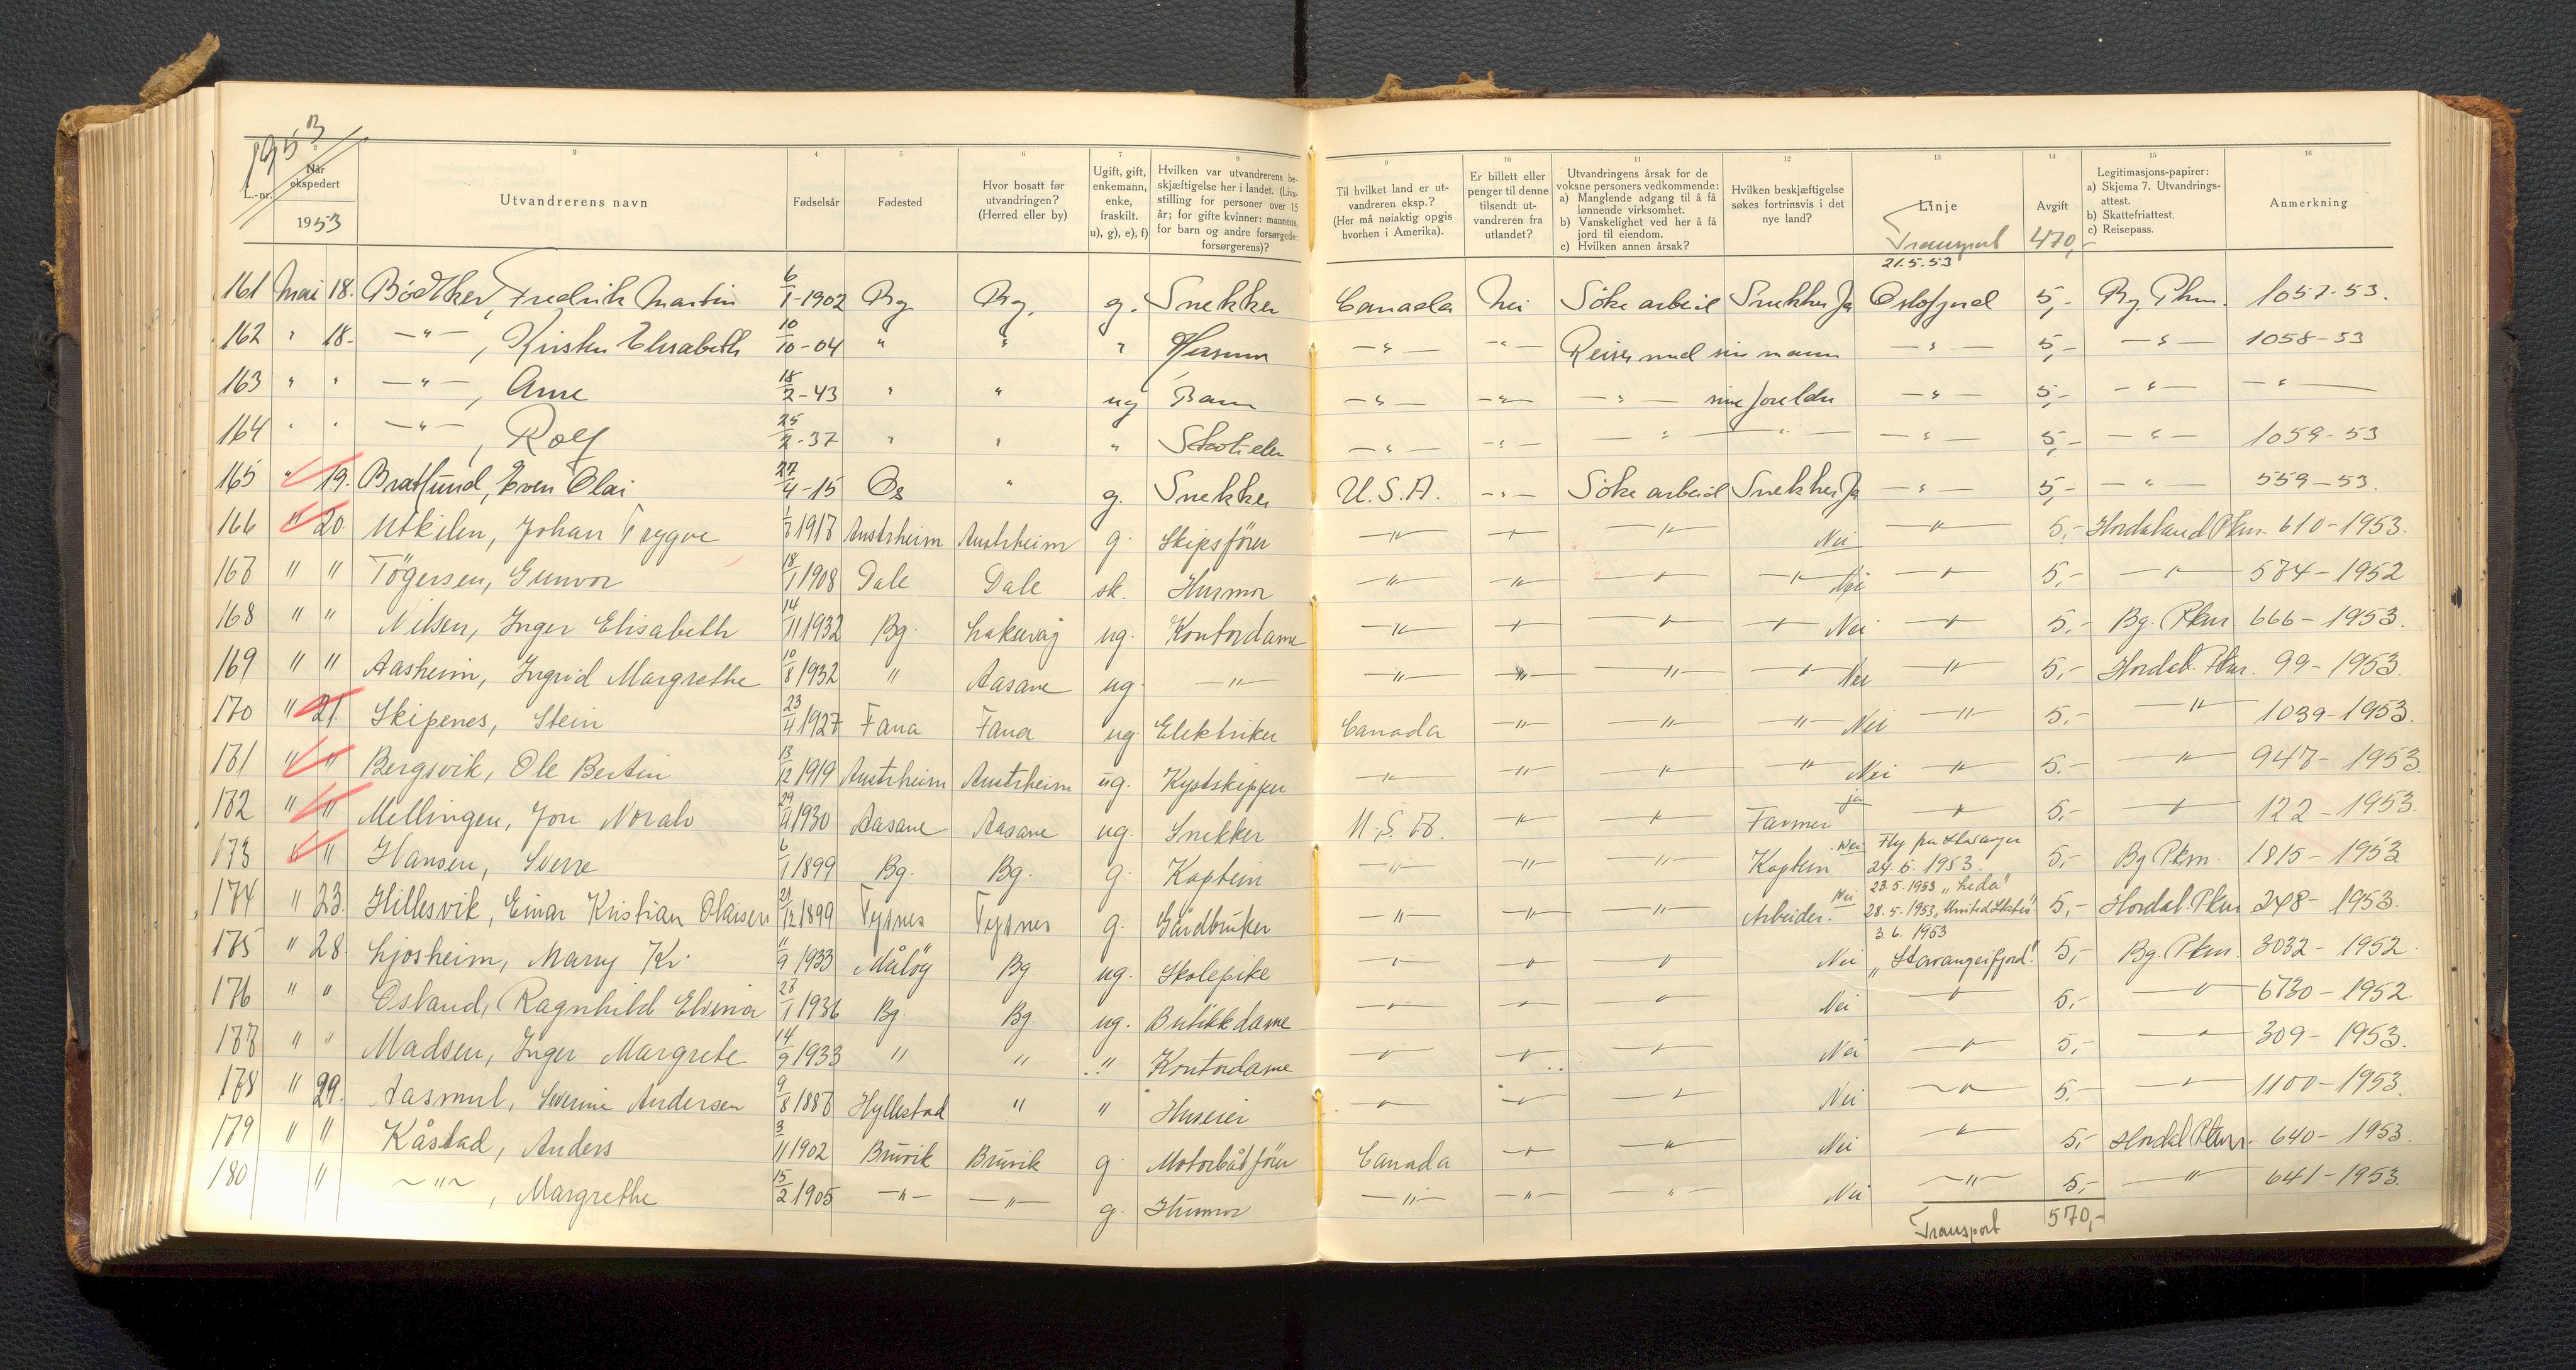 1953
3 4 5 6 7 8 9 10 11 12 13 14 15 16
L.-nr. Når ekspedert 1953
Utvandrerens navn
Fødselsår
Fødested
Hvor bosatt før utvandringen? (Herred eller by)
Ugift, gift, enkemann, enke, fraskilt. u), g), e), f)
Hvilken var utvandrerens beskjæftigelse her i landet. (Livsstilling for personer over 15 år; for gifte kvinner: mannens, for barn og andre forsørgede: forsørgerens)?
Til hvilket land er utvandreren eksp.? (Her må nøiaktig opgis hvorhen i Amerika).
Er billett eller penger til denne tilsendt utvandreren fra utlandet?
Utvandringens årsak for de voksne personers vedkommende: a) Manglende adgang til å få lønnende virksomhet. b) Vanskelighet ved her å få jord til eiendom. c) Hvilken annen årsak?
Hvilken beskjæftigelse søkes fortrinsvis i det nye land?
Linje
Avgift
Legitimasjons-papirer: a) Skjema 7. Utvandrings-attest. b) Skattefriattest. c) Reisepass.
Anmerkning
Transport 470,-
161 Mai 18. Bødtker, Fredrik Martin 6/1-1902 Bg. Bg. g. Snekker Canada Nei Söke arbeid Snekker Ja 21.5.53 Oslofjord 5,- Bg. Pkm. 1057-53.
162 " 18. -"-, Kirsten Elisabeth 10/10-04 " " " Husmor -"- -"- Reiser med sin mann -"- 5,- -"- 1058-53
163 " " -"-, Arne 18/2-43 " " ug Barn -"- -"- -"- sine foreldre -"- 5,- -"- -"-
164 " " -"-, Rolf 25/2-37 " " " Skoleelev -"- -"- -"- -"- -"- 5,- -"- 1059-53
165 " 19. Bratlund, Even Olai 27/4-15 Os " g. Snekker U.S.A. -"- Söke arbeid Snekker Ja -"- 5,- -"- 559-53.
166 " 20 Utkilen, Johan Trygve 1/7 1917 Austrheim Austrheim g. Skipsfører -"- -"- -"- Nei -"- 5,- Hordaland Pkm. 610-1953.
167 " " Tögersen, Gunvor 18/1 1908 Dale Dale sk. Husmor -"- -"- -"- -"- Nei -"- 5,- -"- 574-1952
168 " " Nilsen, Inger Elisabeth 14/11 1932 Bg. Laksevåg ug. Kontordame -"- -"- -"- -"- Nei -"- 5,- Bg. Pkm. 666-1953.
169 " " Aasheim, Ingrid Margrethe 10/8 1932 " Aasane ug. -"- -"- -"- -"- -"- Nei -"- 5,- Hordal. Pkm. 99-1953.
170 " 21. Skipenes, Stein 23/4 1927 Fana Fana ug. Elektriker Canada -"- -"- -"- Nei -"- 5,- -"- 1039-1953.
171 " " Bergsvik, Ole Bertin 13/12 1919 Austrheim Austrheim ug. Kystskipper -"- -"- -"- -"- Nei -"- 5,- -"- 947-1953
172 " " Mellingen, Jon Noralv 29/4 1930 Aasane Aasane ug. Snekker U.S.A. -"- -"- Farmer ja -"- 5,- -"- 122-1953.
173 " " Hansen, Sverre 6/1 1899 Bg. Bg. g. Kaptein -"- -"- -"- Kaptein Nei Fly fra Stavanger 24.5.1953. 5,- Bg Pkm. 1815-1952
174 " 23. Hillesvik, Einar Kristian Olaisen 21/12 1899 Tysnes Tysnes g. Gårdbruker -"- -"- -"- Arbeider. Nei 23.5.1953 "Leda" 28.5.1953, "United States" 5,- Hordal. Pkm 248-1953.
175 " 28. Ljosheim, Marry Kr. 11/9 1933 Måløy Bg ug. Skolepike -"- -"- -"- Nei 3.6.1953 "Stavangerfjord". 5,- Bg. Pkm. 3032-1952
176 " " Osland, Ragnhild Elvina 28/1 1936 Bg. Bg. ug. Butikkdame -"- -"- -"- Nei -"- 5,- -"- 6730-1952.
177 " " Madsen, Inger Margrete 14/9 1933 " " " Kontordame -"- -"- -"- Nei -"- 5,- -"- 309-1953.
178 " 29. Aasmul, Severine Andersen 9/8 1887 Hyllestad " " Huseier -"- -"- -"- Nei -"- 5,- -"- 1100-1953.
179 " " Kåstad, Anders 3/11 1902 Bruvik Bruvik g. Motorbåtfører Canada -"- -"- Nei -"- 5,- Hordal Pkm. 640-1953.
180 " -"-, Margrethe 15/2 1905 -"- -"- g. Husmor -"- -"- -"- Nei -"- 5,- -"- 641-1953.
Transport 570,-